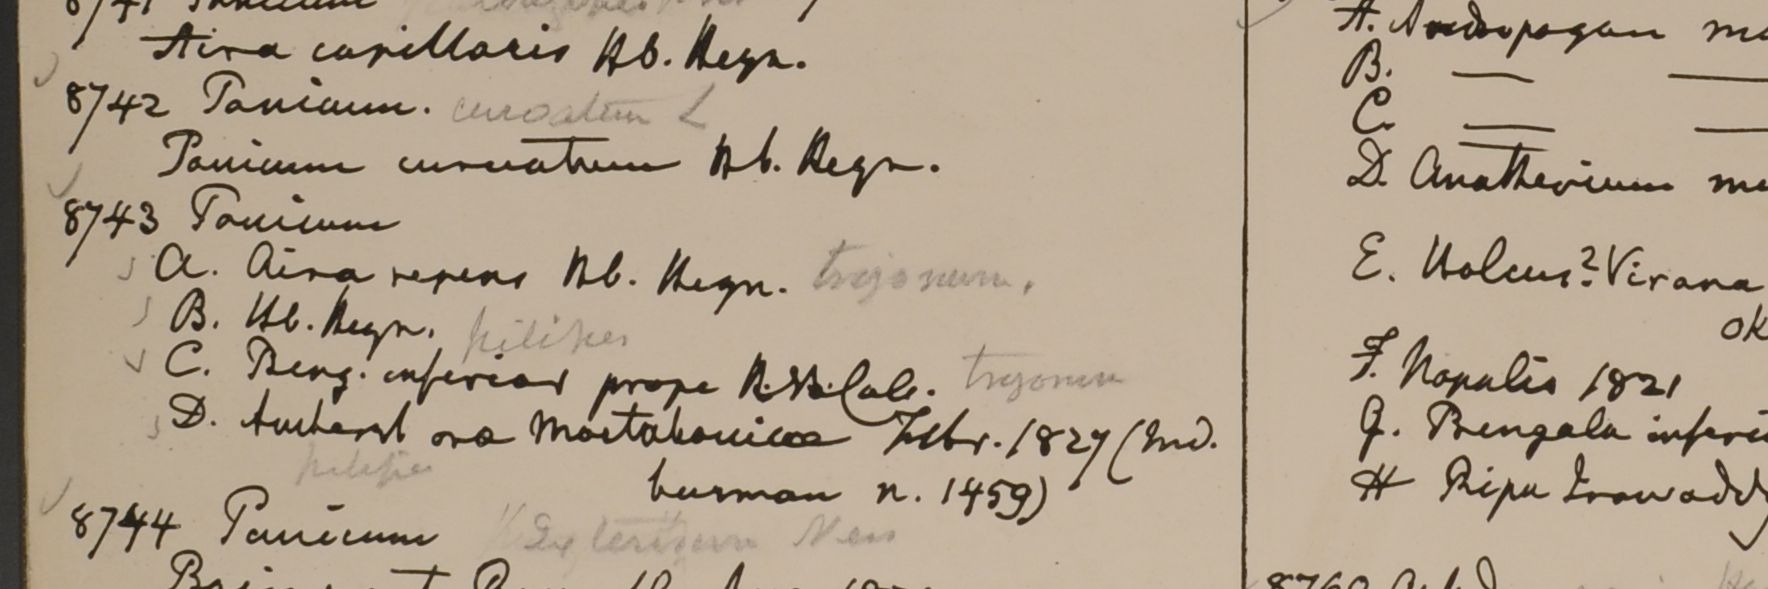 8741 Panicum
Aira capillaris Hb. Heyn.
8742 Panicum. curvatum L
Panicum curvatum Hb. Heyn.
8743 Panicum
A. Aira repens Hb. Heyn. trigonum.
B. Hb. Heyn. pilipes
C. Beng. inferior prope H. B. Calc. trigonum
D. Amherst ora Martabanica Febr. 1827 (Ind.
pilipes
burman n. 1459)
8744 Panicum Nees
A. Andropogon
B. — —
C. — —
D. Anatherium
E. Holcus? Virana
F. Napalia 1821
G. Bengala
H Ripa Irawaddy